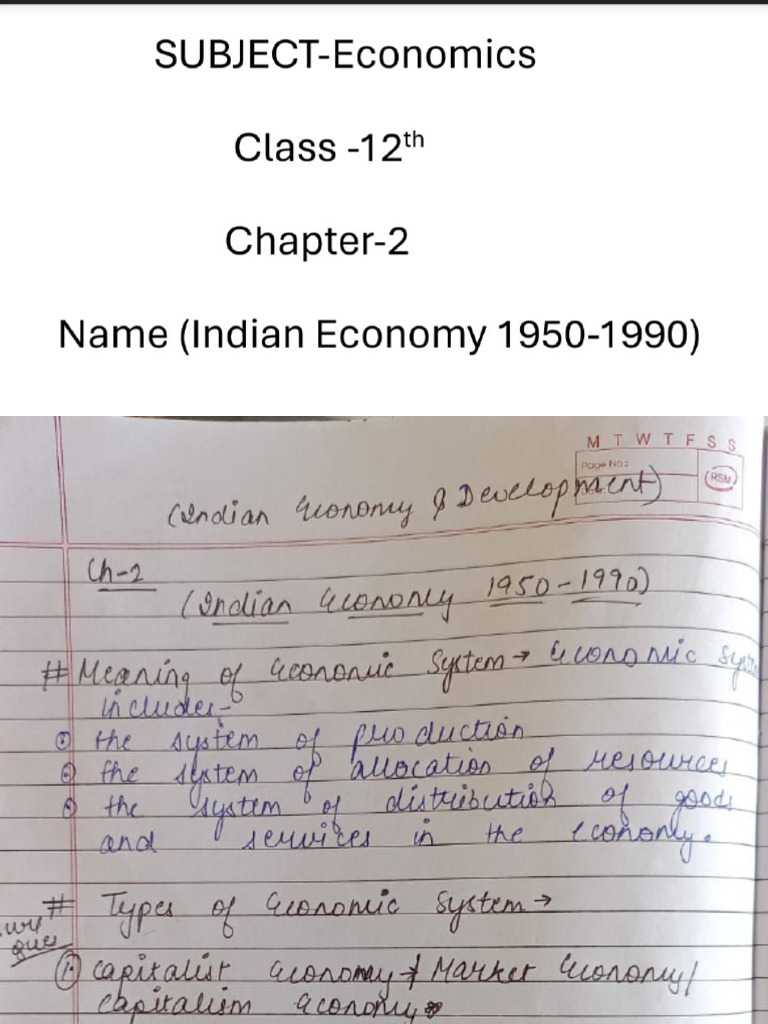 SUBJECT-Economics
Class -12th
Chapter-2
Name (Indian Economy 1950-1990)
M T W T F S S
Page No:
RSM
(Indian Economy & Development)
Ch-2
(Indian Economy 1950-1990)
# Meaning of Economic System → Economic
includes-
① the system of production
② the system of allocation of resources
③ the system of distribution of goods
and services in the economy.
# Types of Economic System →
① Capitalist Economy / Market Economy/
Capitalism Economy